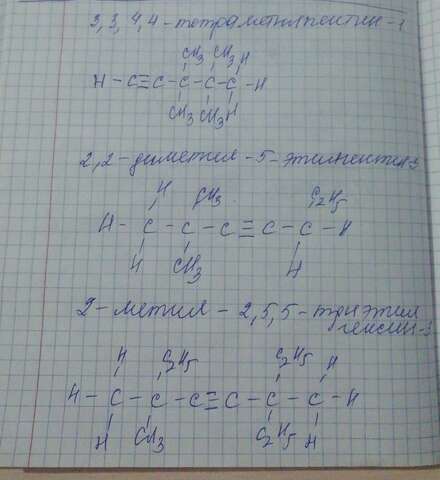 3,3,4,4-тетраметилпентин-1
CH3 CH3 H
H - C≡C - C - C - C - H
CH3 CH3 H
2,2-диметил-5-этилпентин-3
H CH3 C2H5
H - C - C - C ≡ C - C - H
H CH3 H
2-метил-2,5,5-триэтил
гексин-3
H C2H5 C2H5 H
H - C - C - C ≡ C - C - C - H
H CH3 C2H5 H